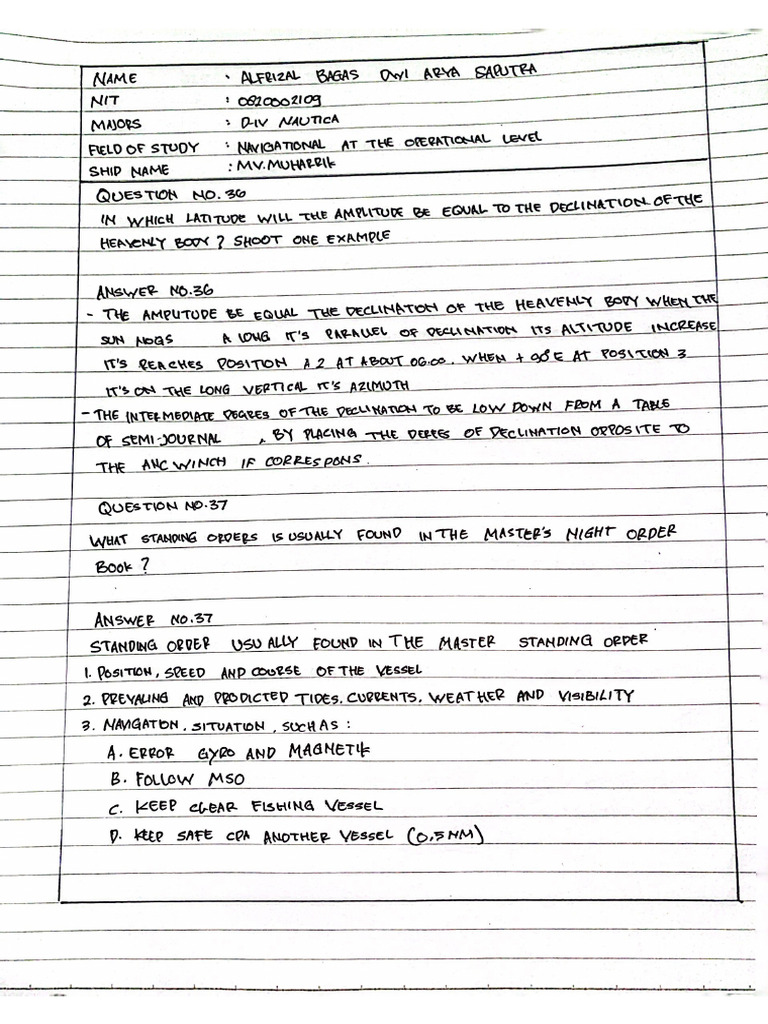 NAME : ALFRIZAL BAGAS DWI ARYA SAPUTRA
NIT : 0820002109
MAJORS : D-IV NAUTICA
FIELD OF STUDY : NAVIGATIONAL AT THE OPERATIONAL LEVEL
SHIP NAME : MV. MUHARRIK
QUESTION NO. 36
IN WHICH LATITUDE WILL THE AMPLITUDE BE EQUAL TO THE DECLINATION OF THE
HEAVENLY BODY? SHOOT ONE EXAMPLE
ANSWER NO.36
- THE AMPLITUDE BE EQUAL THE DECLINATION OF THE HEAVENLY BODY WHEN THE
SUN A LONG IT'S PARALLEL OF DECLINATION ITS ALTITUDE INCREASE
IT'S REACHES POSITION A 2 AT ABOUT 06.00. WHEN + 90°E AT POSITION 3
IT'S ON THE LONG VERTICAL IT'S AZIMUTH
- THE INTERMEDIATE DEGRES OF THE DECLINATION TO BE LOW DOWN FROM A TABLE
OF SEMI-JOURNAL , BY PLACING THE OF DECLINATION OPPOSITE TO
THE ANC WINCH IF CORRESPONS.
QUESTION NO.37
WHAT STANDING ORDERS IS USUALLY FOUND IN THE MASTER'S NIGHT ORDER
BOOK ?
ANSWER NO.37
STANDING ORDER USUALLY FOUND IN THE MASTER STANDING ORDER
1. POSITION, SPEED AND COURSE OF THE VESSEL
2. PREVALING AND PRODICTED TIDES. CURRENTS. WEATHER AND VISIBILITY
3. NAVIGATION. SITUATION, SUCH AS :
A. ERROR GYRO AND MAGNETIK
B. FOLLOW MSO
C. KEEP CLEAR FISHING VESSEL
D. KEEP SAFE CPA ANOTHER VESSEL (0,5 NM)